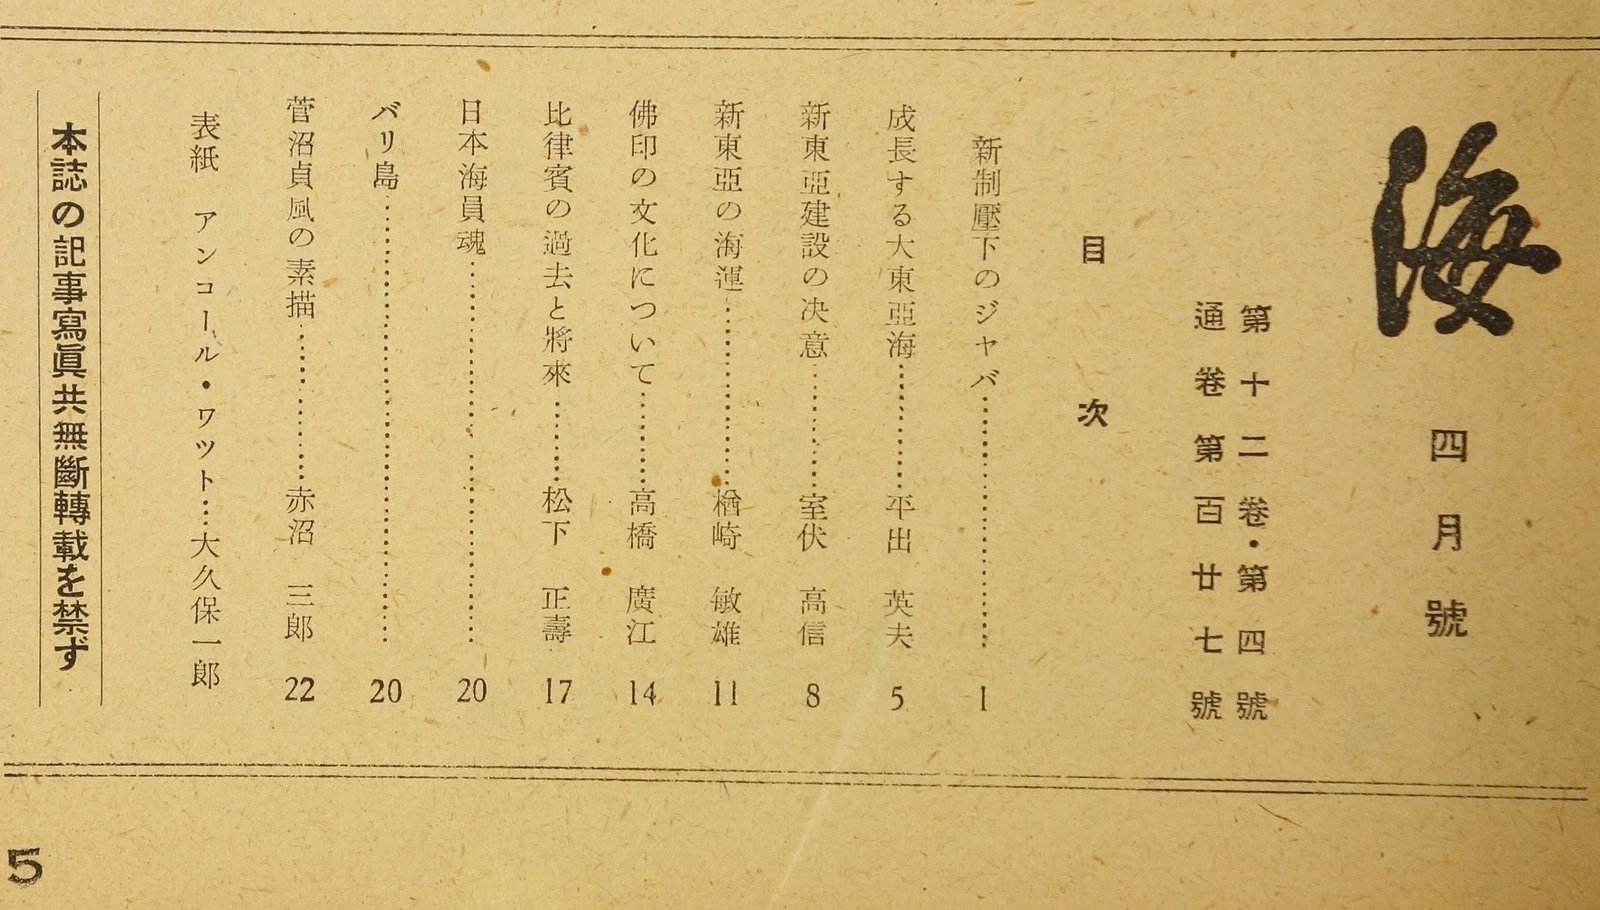 海 四月號
第十二卷・第四號
通卷第百廿七號
目次
新制壓下のジャバ……………………1
成長する大東亞海…………平出 英夫 5
新東亞建設の决意…………室伏 高信 8
新東亞の海運…………楢崎 敏雄 11
佛印の文化について…………高橋 廣江 14
比律賓の過去と將來…………松下 正壽 17
日本海員魂……………………20
バリ島……………………20
菅沼貞風の素描…………赤沼 三郎 22
表紙 アンコール・ワツト…大久保一郎
本誌の記事寫眞共無斷轉載を禁ず
5